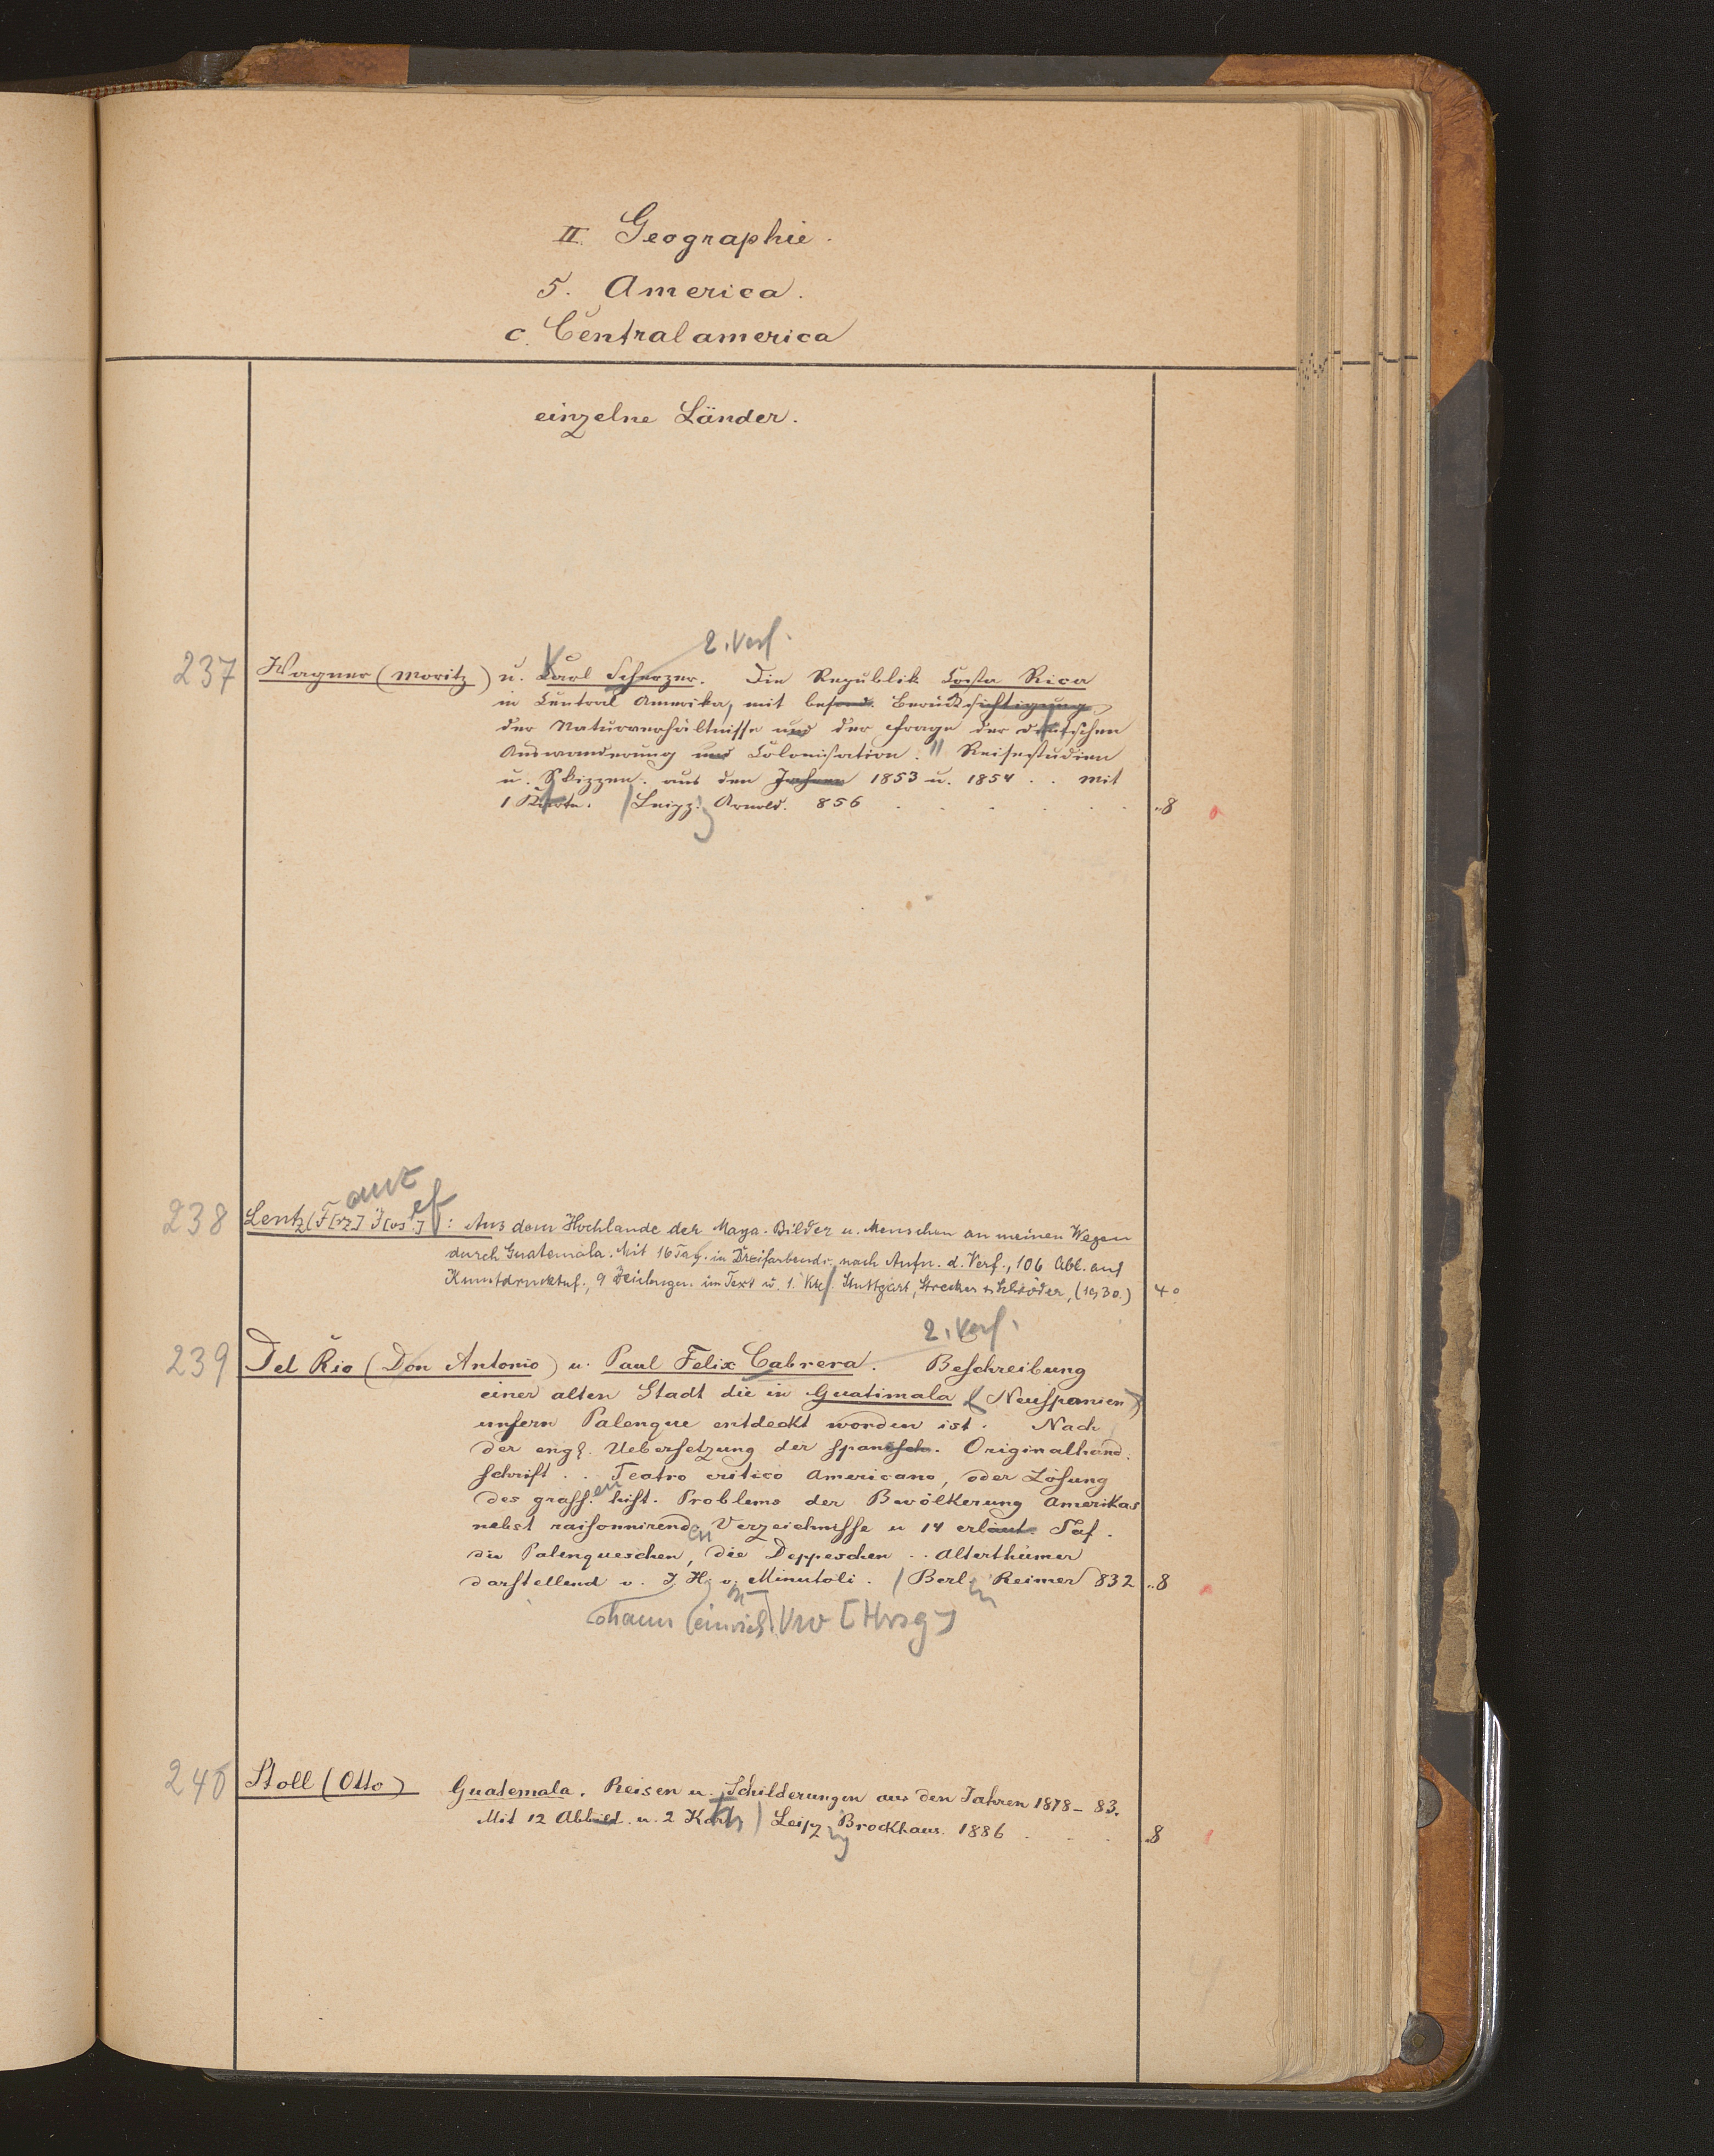 II. Geographie.
5. America.
c. Centralamerica
einzelne Länder.
2. Verf.
237 Wagner (Moritz) u. Carl Scherzer. Die Republik Costa Rica
in Central Amerika, mit besond. Berücksichtigung
der Naturverhältnisse und der Frage der deutschen
Auswanderung und Colonisation. Reisestudien
u. Skizzen. aus den Jahren 1853 u. 1854 . . Mit
1 Karte. Leipz. Arnold. 856 . . . . . . ..8
anz ef
238 Lentz (F[rz] J[os]): Aus dem Hochlande der Maya. Bilder u. Menschen an meinen Wegen
durch Guatemala. Mit 16 Taf. in Dreifarbendr. nach Aufn. d. Verf., 106 Abb. auf
Kunstdrucktaf., 9 Zeichngn. im Text u. 1. Kte. Stuttgart, Strecker & Schröder, (1930.) 4°
2. Verf.
239 Del Rio (Don Antonio) u. Paul Felix Cabrera. Beschreibung
einer alten Stadt die in Guatimala (Neuspanien)
unfern Palenque entdeckt worden ist. Nach
der engl. Uebersetzung der spanisch. Originalhand.
schrift . . Teatro critico Americano, oder Lösung
des gross.en hist. Problems der Bevölkerung Amerikas
nebst raisonnirenden Verzeichnisse u 14 erläut. Taf.
die Palenqueschen, die Deppeschen . . Alterthümer
darstellend v. J. H. v. Minutoli. Berl. Reimer 832 ..8
ohann einrich [Hrsg]
240 Stoll (Otto) Guatemala. Reisen u. Schilderungen aus den Jahren 1878–83.
Mit 12 Abbild. u. 2 Kart. Leipz. Brockhaus. 1886 . . . 8